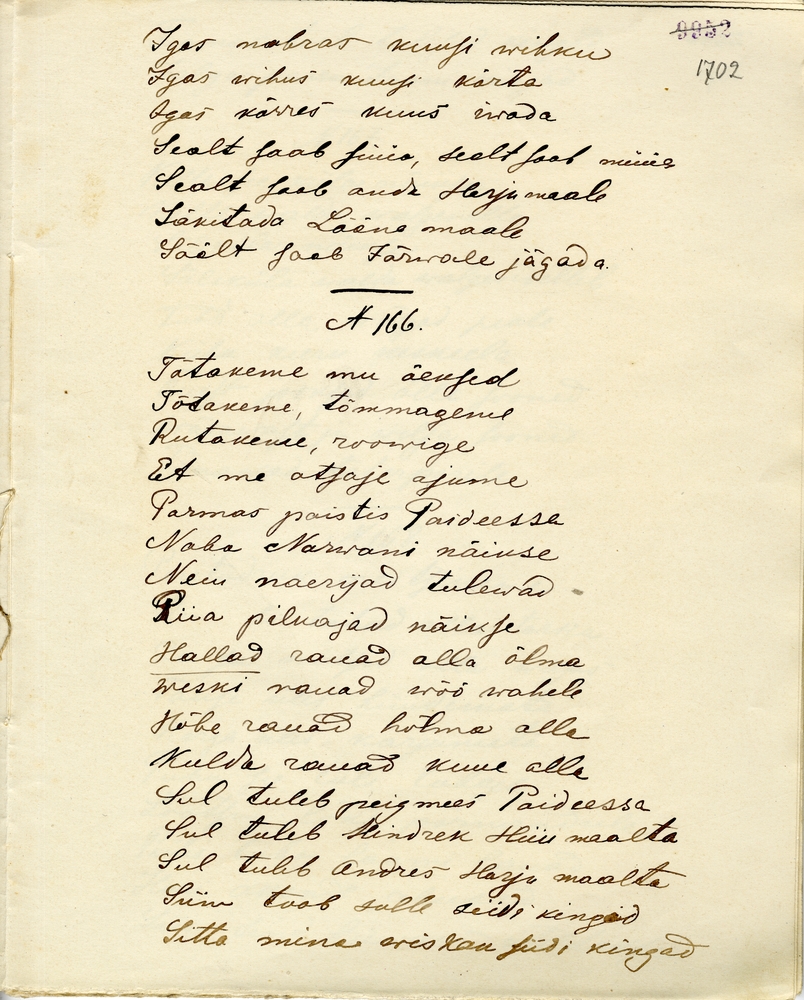 9952
1702
Igas nabras kuusi wihku
Igas wihus kuusi kõrta
Igas kõrres kuus iwada
Sealt saab süüa, sealt saab müüa
Sealt saab anda Harju maale
Läkitada Lääne maale
Säält saab Järwale jägada.
№ 166.
Tõtakeme mu õeksed
Tõtakeme, tõmmageme
Rutakeme, roowige
Et me otsaje ajume
Parmas paistis Paideessa
Naba Narwani näikse
Neiu naerijad tulewad
Riia pilkajad näikse
Hallad rauad alla õlma
Weski rauad wöö wahele
Hõbe rauad hõlma alla
Kulda rauad kuue alla
Sul tuleb peigmees Paideessa
Sul tuleb Hindrek Hiiu maalta
Sul tuleb Andres Harju maalta
Siim toob sulle siidi kingad
Sitta mina wiskan siidi kingad